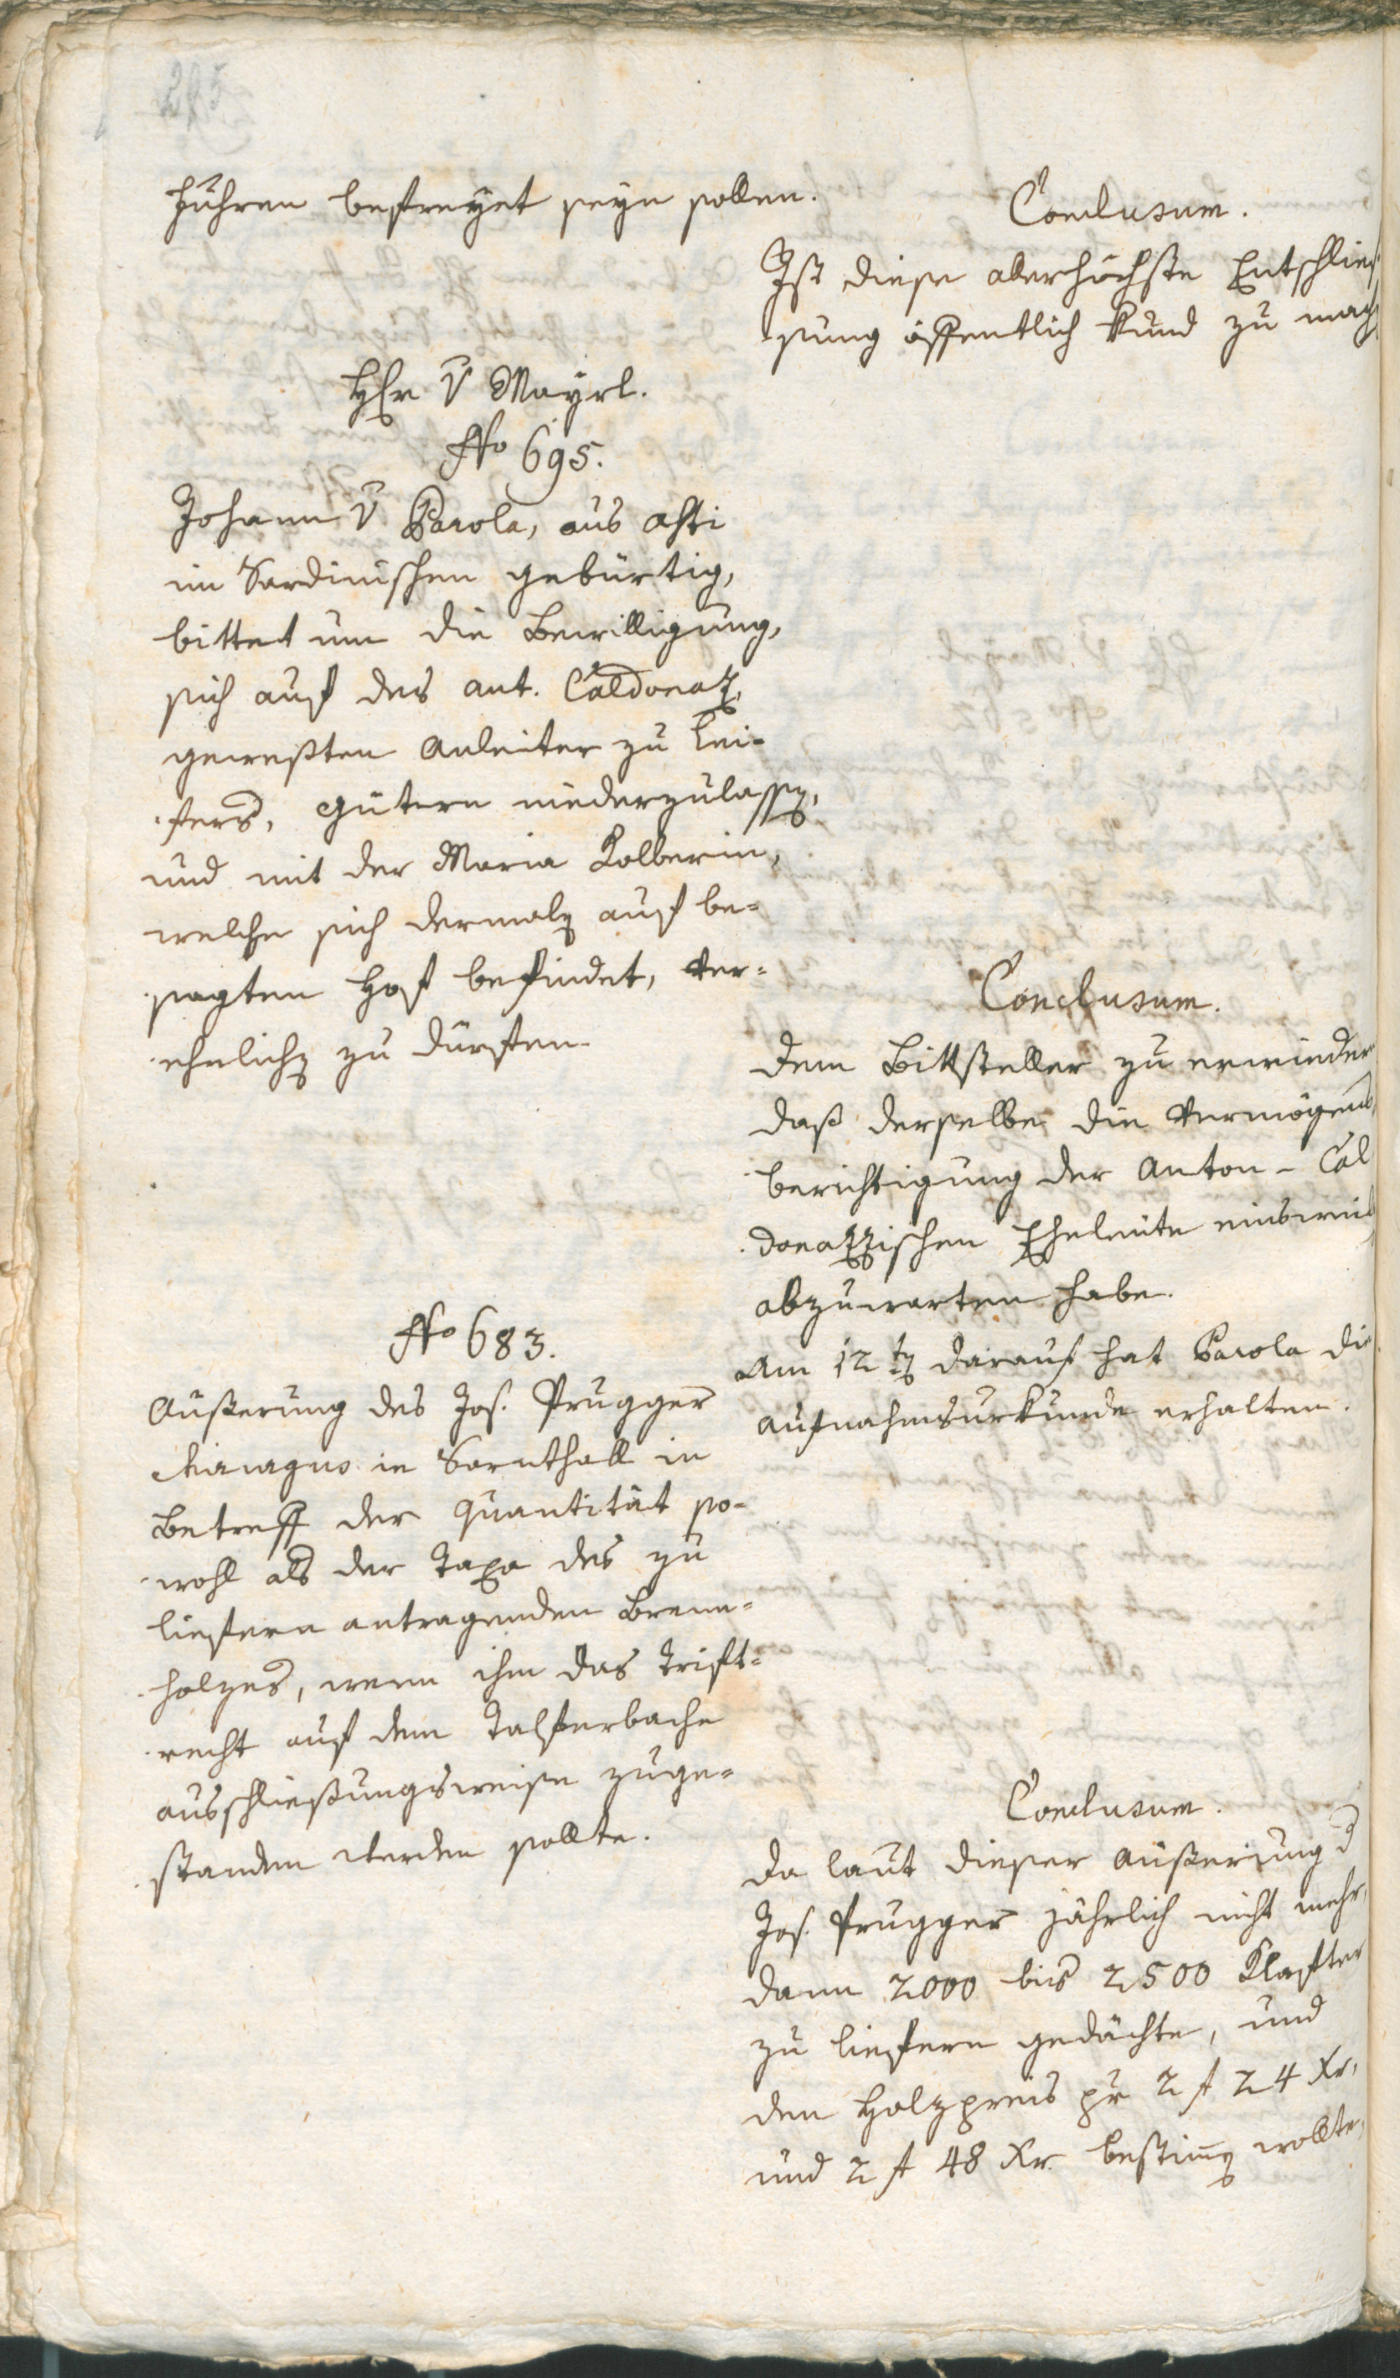 führen befreyet seyn sollen.
Conclusum.
Ist diese allerhöchste Entschlies
sung öffentlich kund zu mach
Hr v Mayrl.
No 695.
Johann v Parola, aus Asti
im Sardinischen gebürtig,
bittet um die Bewilligung,
sich auf des Ant. Caldonatz,
gewesten Anleiter zu Lei-
fers, Gütern niederzulassen,
und mit der Maria Kolberin,
welche sich dermalen auf be-
sagten Hof befindet, ver-
ehelichen zu dürfen.
Conclusum.
Dem Bittsteller zu erwieder
daß derselbe die Vermögens
berichtigung der Anton- Cal
donazzischen Eheleute einsweil
abzuwarten habe.
Am 12ten darauf hat Parola die
Aufnahmsurkunde erhalten.
No 683.
Äußerung des Jos. Prugger
in Sarnthall in
Betreff der Quantität so-
wohl als der Taxa des zu
liefern antragenden Brenn-
holzes, wenn ihm das Trift-
recht auf dem Talferbache
ausschließungsweise zuge-
standen werden sollte.
Conclusum.
Da laut dieser Äußerung d
Jos. Prugger jährlich nicht mehr,
dann 2000 bis 2500 Klafter
zu liefern gedächte, und
den Holzpreis pr 2 f 24 Xr,
und 2 f 48 Xr. bestimmen wollte,